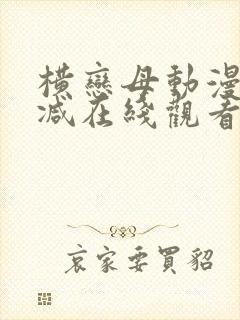 橫戀母動漫
减在綫觀看
哀家要買貂